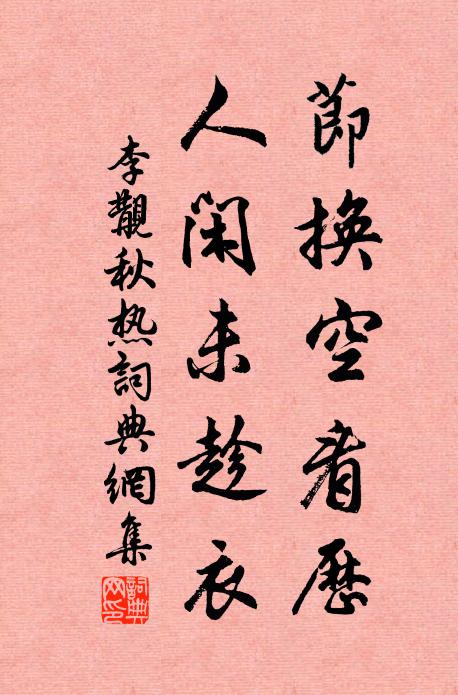 節換空看歷
人閑未趁衣
李覯秋热詞典網集
詞典
网印